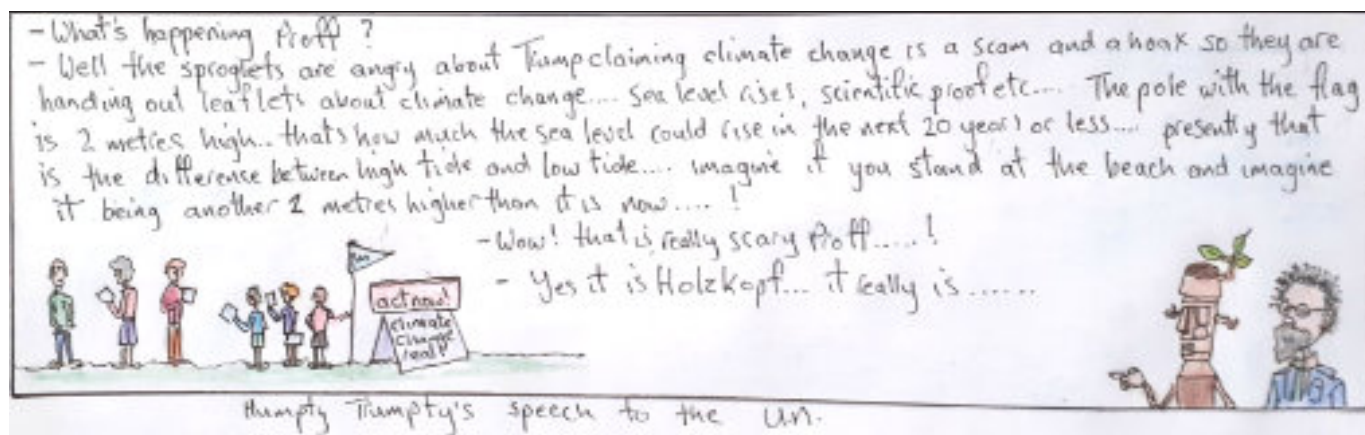 - What's happening Proff ?
- Well the sproglets are angry about Trump claiming climate change is a scam and a hoax so they are
handing out leaflets about climate change.... sea level rises, scientific proof etc.... The pole with the flag
is 2 metres high.. that's how much the sea level could rise in the next 20 years or less.... presently that
is the difference between high tide and low tide.... imagine if you stand at the beach and imagine
it being another 2 metres higher than it is now.... !
- Wow! that is really scary Proff.....!
- Yes it is Holzkopf... it really is ......
act now!
climate
change
real!
Humpty Trumpty's speech to the U.N.